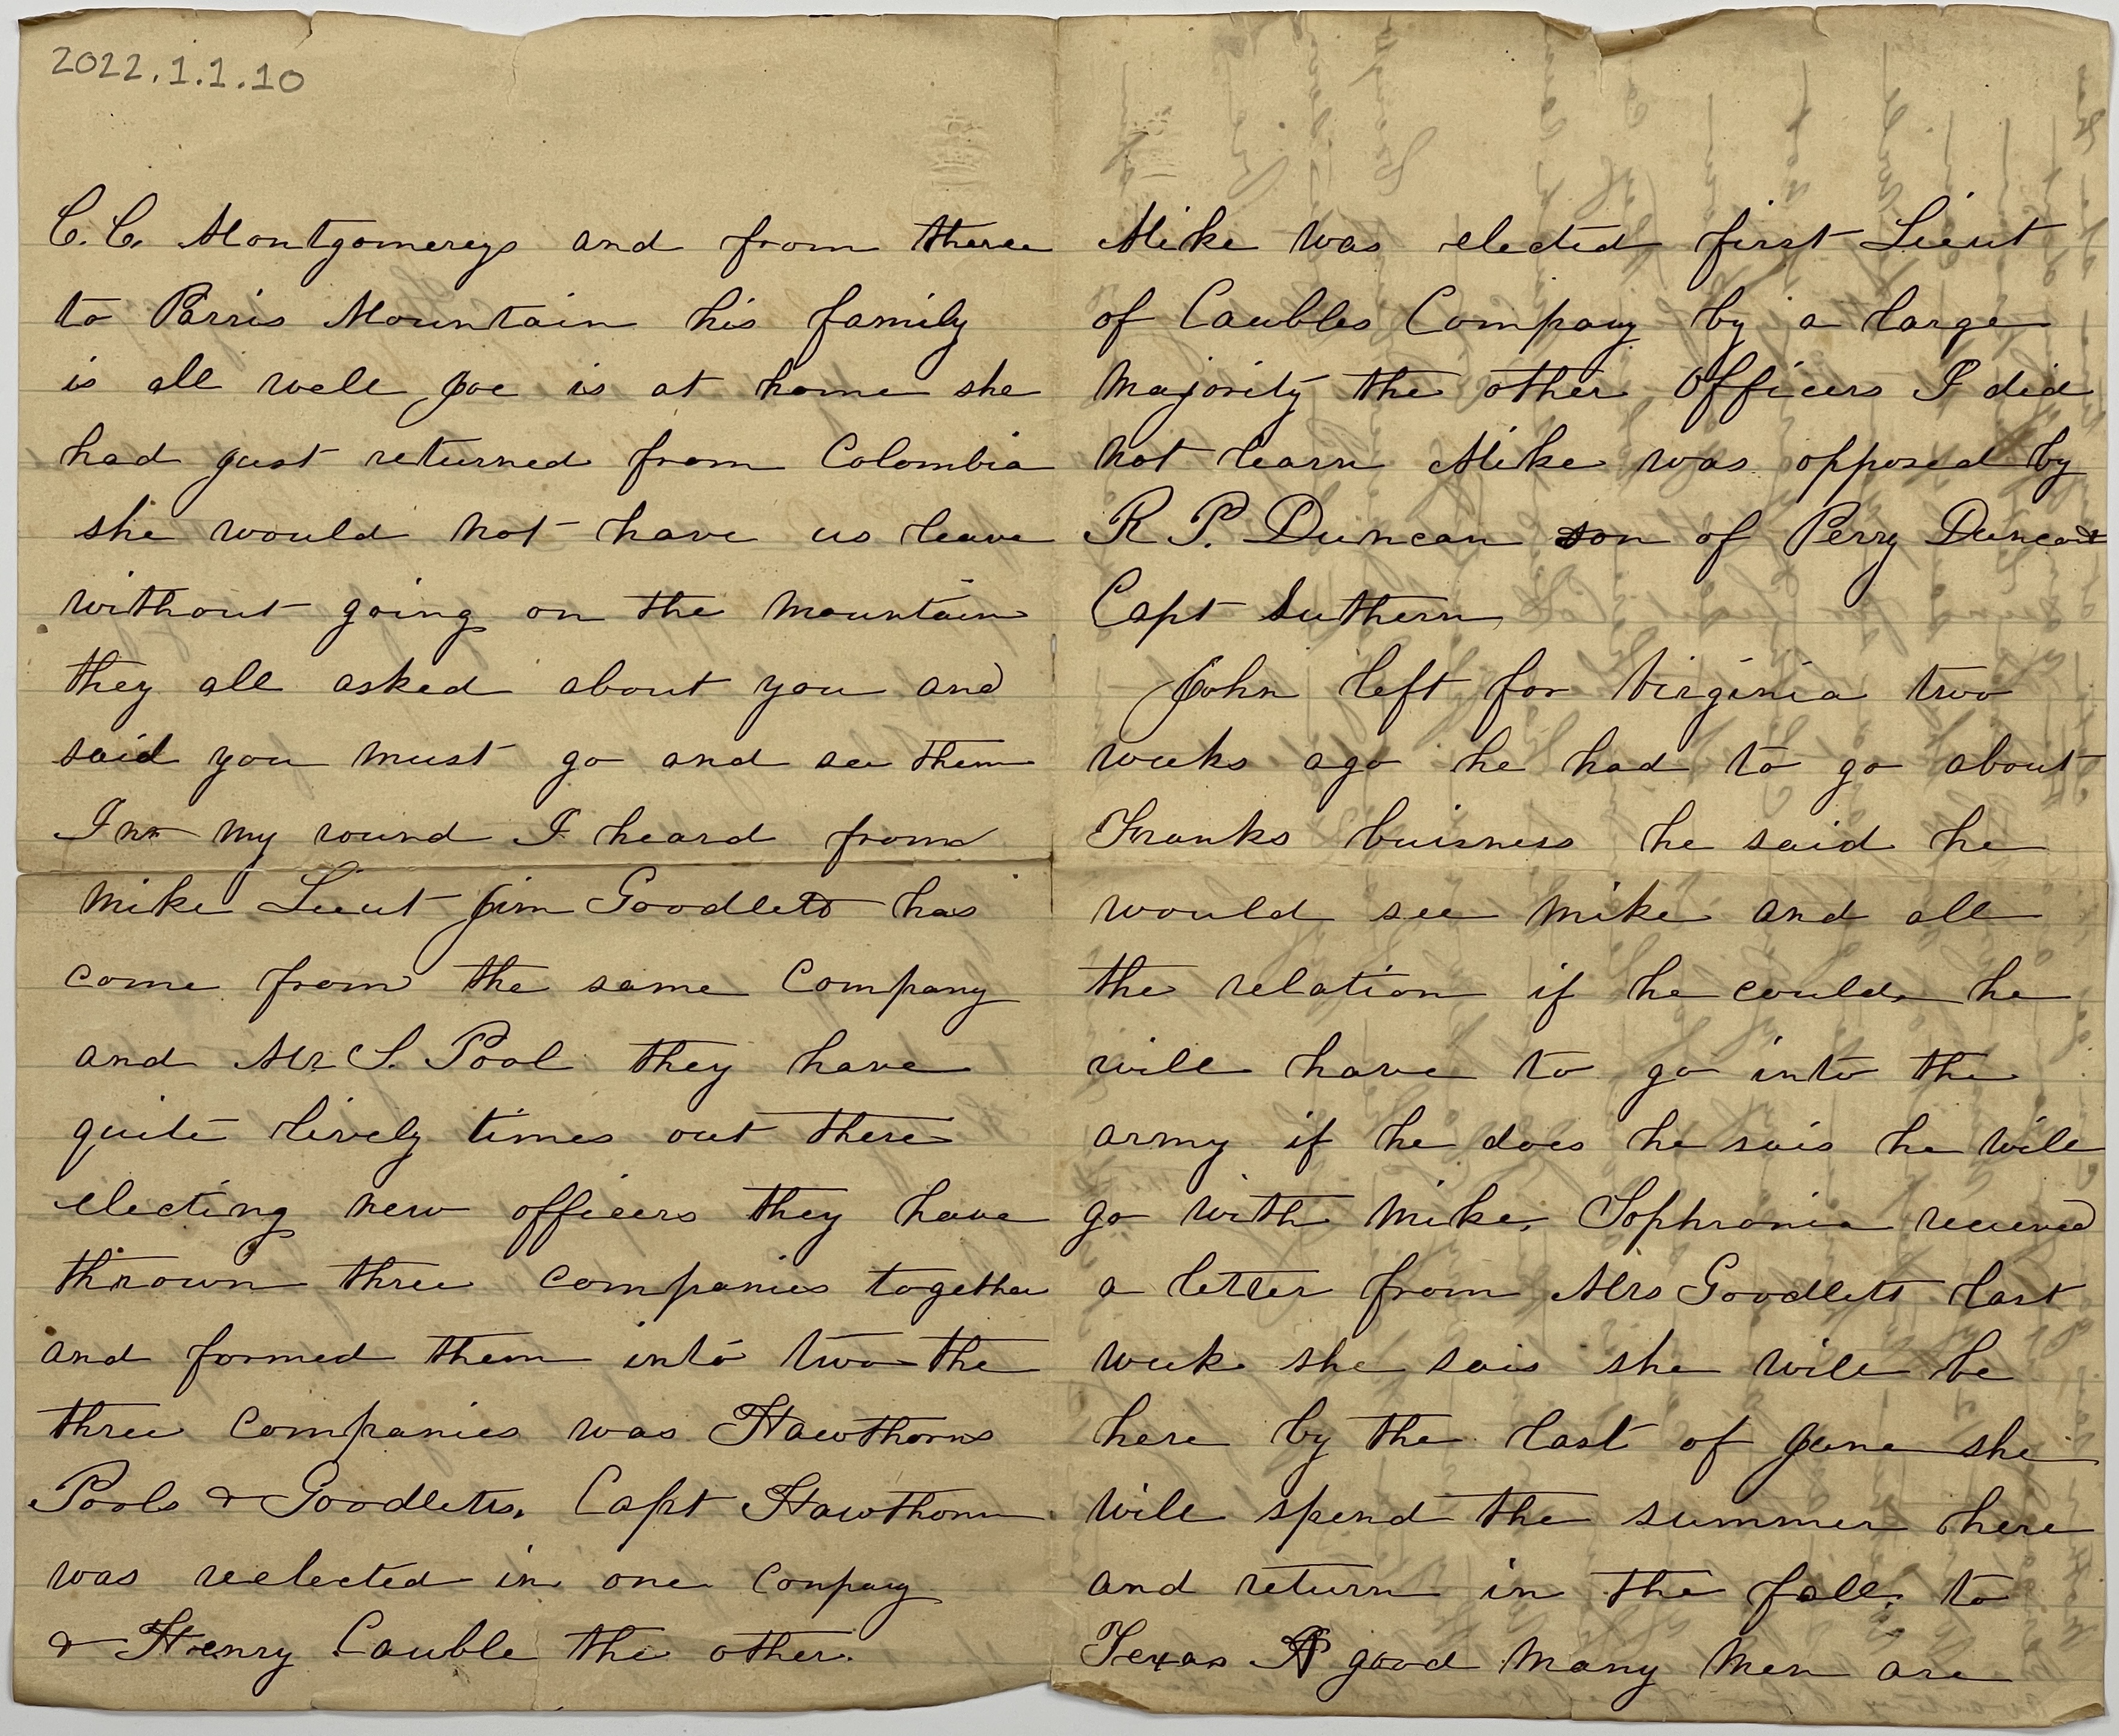 2022.1.1.10
C. C. Montgomerys and from there
to Parris Mountain his family
is all well Joe is at home she
had just returned from Colombia
she would not have us leave
without going on the mountain
they all asked about you and
said you must go and see them
In my round I heard from
Mike Lieut Jim Goodlett has
come from the same Company
and Mr S. Pool they have
quite lively times out there
electing new officers they have
thrown three companies together
and formed them into two the
three companies was Hawthorns
Pools & Goodletts. Capt Hawthorn
was reelected in one Conpany
& Henry Cauble the other.
Mike was elected first Lieut
of Caubles Company by a large
majority the other officers I did
not learn Mike was opposed by
R. P. Duncan son of Perry Duncan
Capt Suthern
John left for Virginia two
weeks ago he had to go about
Franks buisness he said he
would see Mike and all
the relation if he could he
will have to go into the
army if he does he sais he will
go with Mike. Sophronia received
a letter from Mrs Goodlett last
week she sais she will be
here by the last of June she
will spend the summer here
and return in the fall to
Texas A good many men are